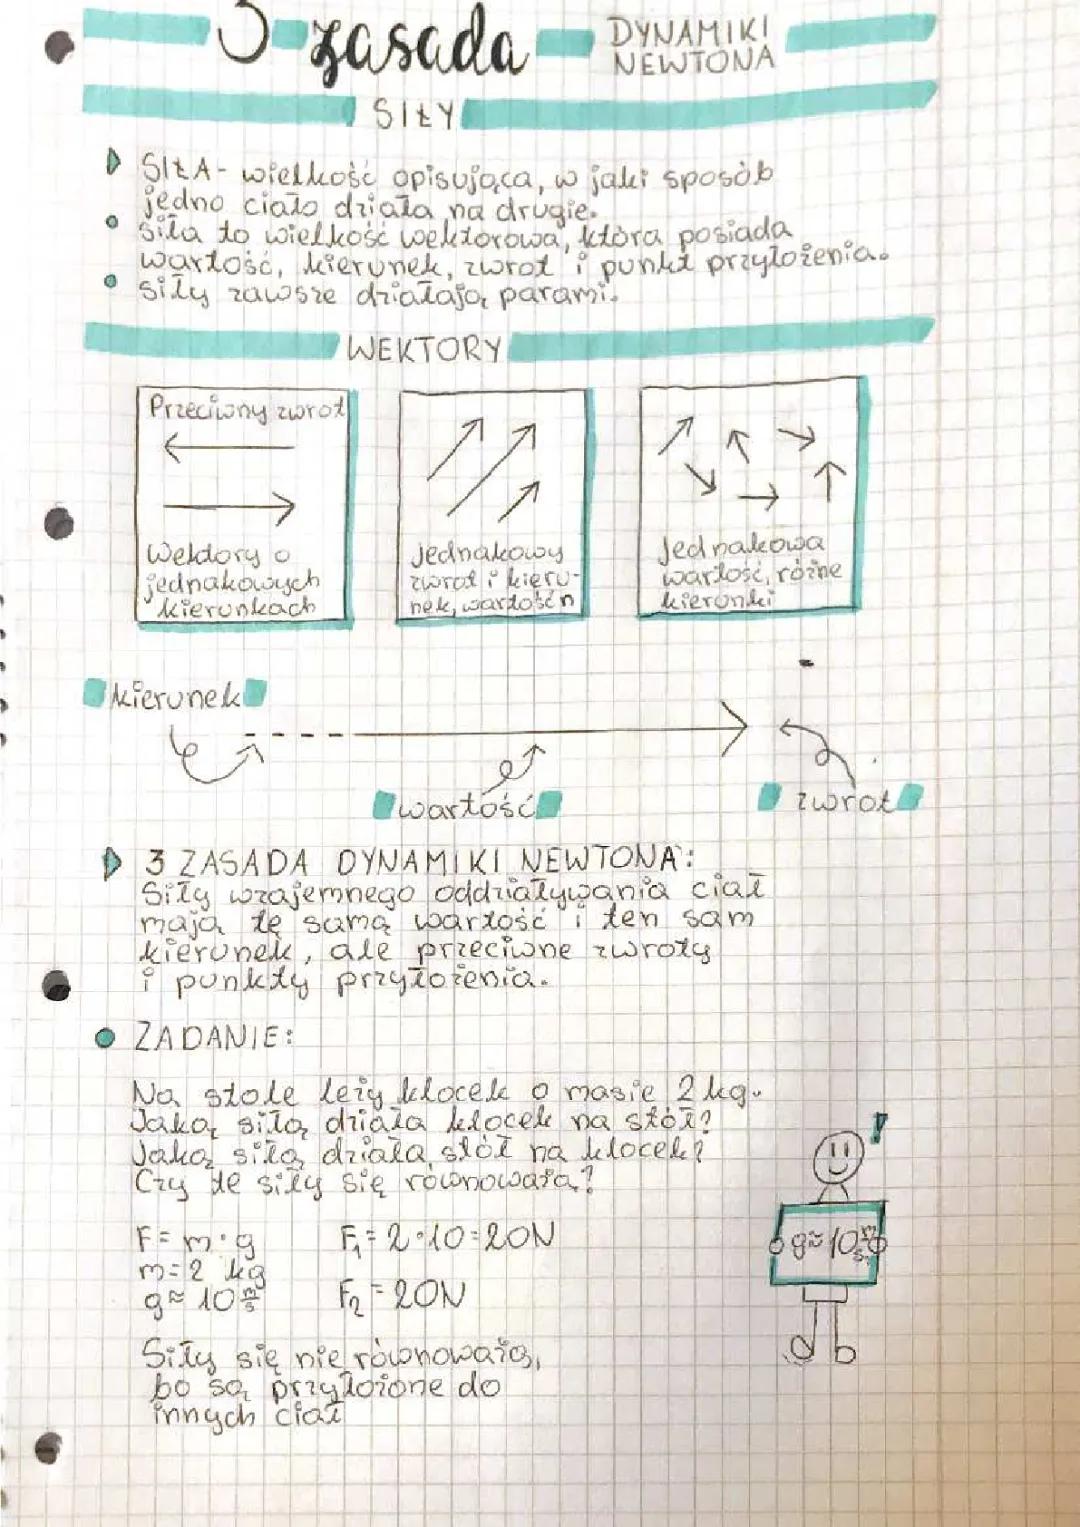 3 zasada DYNAMIKI NEWTONA
SIŁY
SIŁA - wielkość opisująca, w jaki sposób
jedno ciało działa na drugie.
Siła to wielkość wektorowa, która posiada
wartość, kierunek, zwrot i punkt przyłożenia.
siły zawsze działają parami.
WEKTORY
Przeciwny zwrot
Wektory o
jednakowych
kierunkach
jednakowy
zwrot i kieru-
nek, wartość n
Jednakowa
wartość, różne
kierunki
kierunek
wartość
zwrot
3 ZASADA DYNAMIKI NEWTONA:
Siły wzajemnego oddziaływania ciał
mają tę samą wartość i ten sam
kierunek, ale przeciwne zwroty
i punkty przyłożenia.
ZADANIE:
Na stole leży klocek o masie 2 kg.
Jaką siłą działa klocek na stół?
Jaką siłą działa stół na klocek?
Czy te siły się równoważą?
F = m · g
m = 2 kg
g ≈ 10 m/s
F₁ = 2 · 10 = 20N
F₂ = 20N
g ≈ 10 m/s
Siły się nie równoważą,
bo są przyłożone do
innych ciał